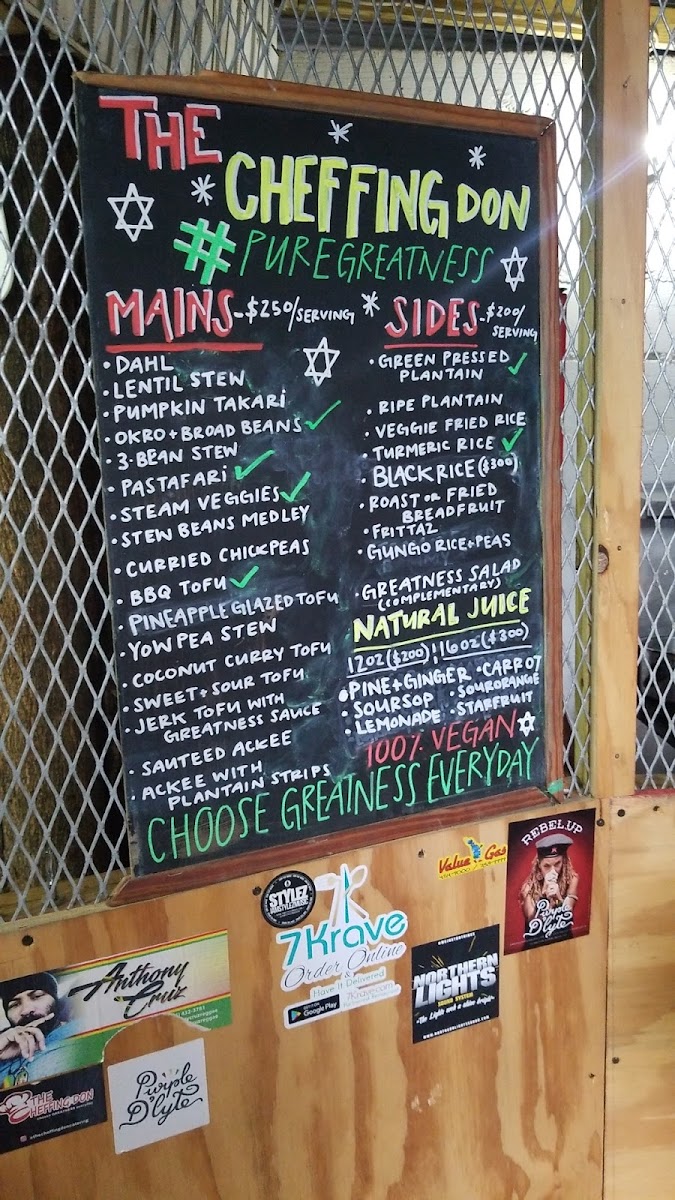 THE
CHEFFING DON
#PUREGREATNESS
MAINS-$250/SERVING
• DAHL
• LENTIL STEW
• PUMPKIN TAKARI
• OKRO + BROAD BEANS
• 3-BEAN STEW
• PASTAFARI
• STEAM VEGGIES
• STEW BEANS MEDLEY
• CURRIED CHICKPEAS
• BBQ TOFU
• PINEAPPLE GLAZED TOFU
• YOW PEA STEW
• COCONUT CURRY TOFU
• SWEET + SOUR TOFU
• JERK TOFU WITH
GREATNESS SAUCE
• SAUTEED ACKEE
• ACKEE WITH
PLANTAIN STRIPS
SIDES-$200/
SERVING
• GREEN PRESSED
PLANTAIN
• RIPE PLANTAIN
• VEGGIE FRIED RICE
• TURMERIC RICE
• BLACK RICE ($300)
• ROAST OR FRIED
BREADFRUIT
• FRITTAZ
• GUNGO RICE + PEAS
• GREATNESS SALAD
(COMPLEMENTARY)
NATURAL JUICE
12oz ($200) ¦ 16oz ($300)
• PINE + GINGER • CARROT
• SOURSOP • SOURORANGE
• LEMONADE • STARFRUIT
100% VEGAN
CHOOSE GREATNESS EVERYDAY
STYLEZ
7Krave
Order Online
&
Have It Delivered
Google Play
7Krave.com
Value Gas
REBEL UP
Purple
D'lyte
NORTHERN
LIGHTS
SOUND SYSTEM
Anthony
Cruz
THE
CHEFFING DON
Purple
D'lyte